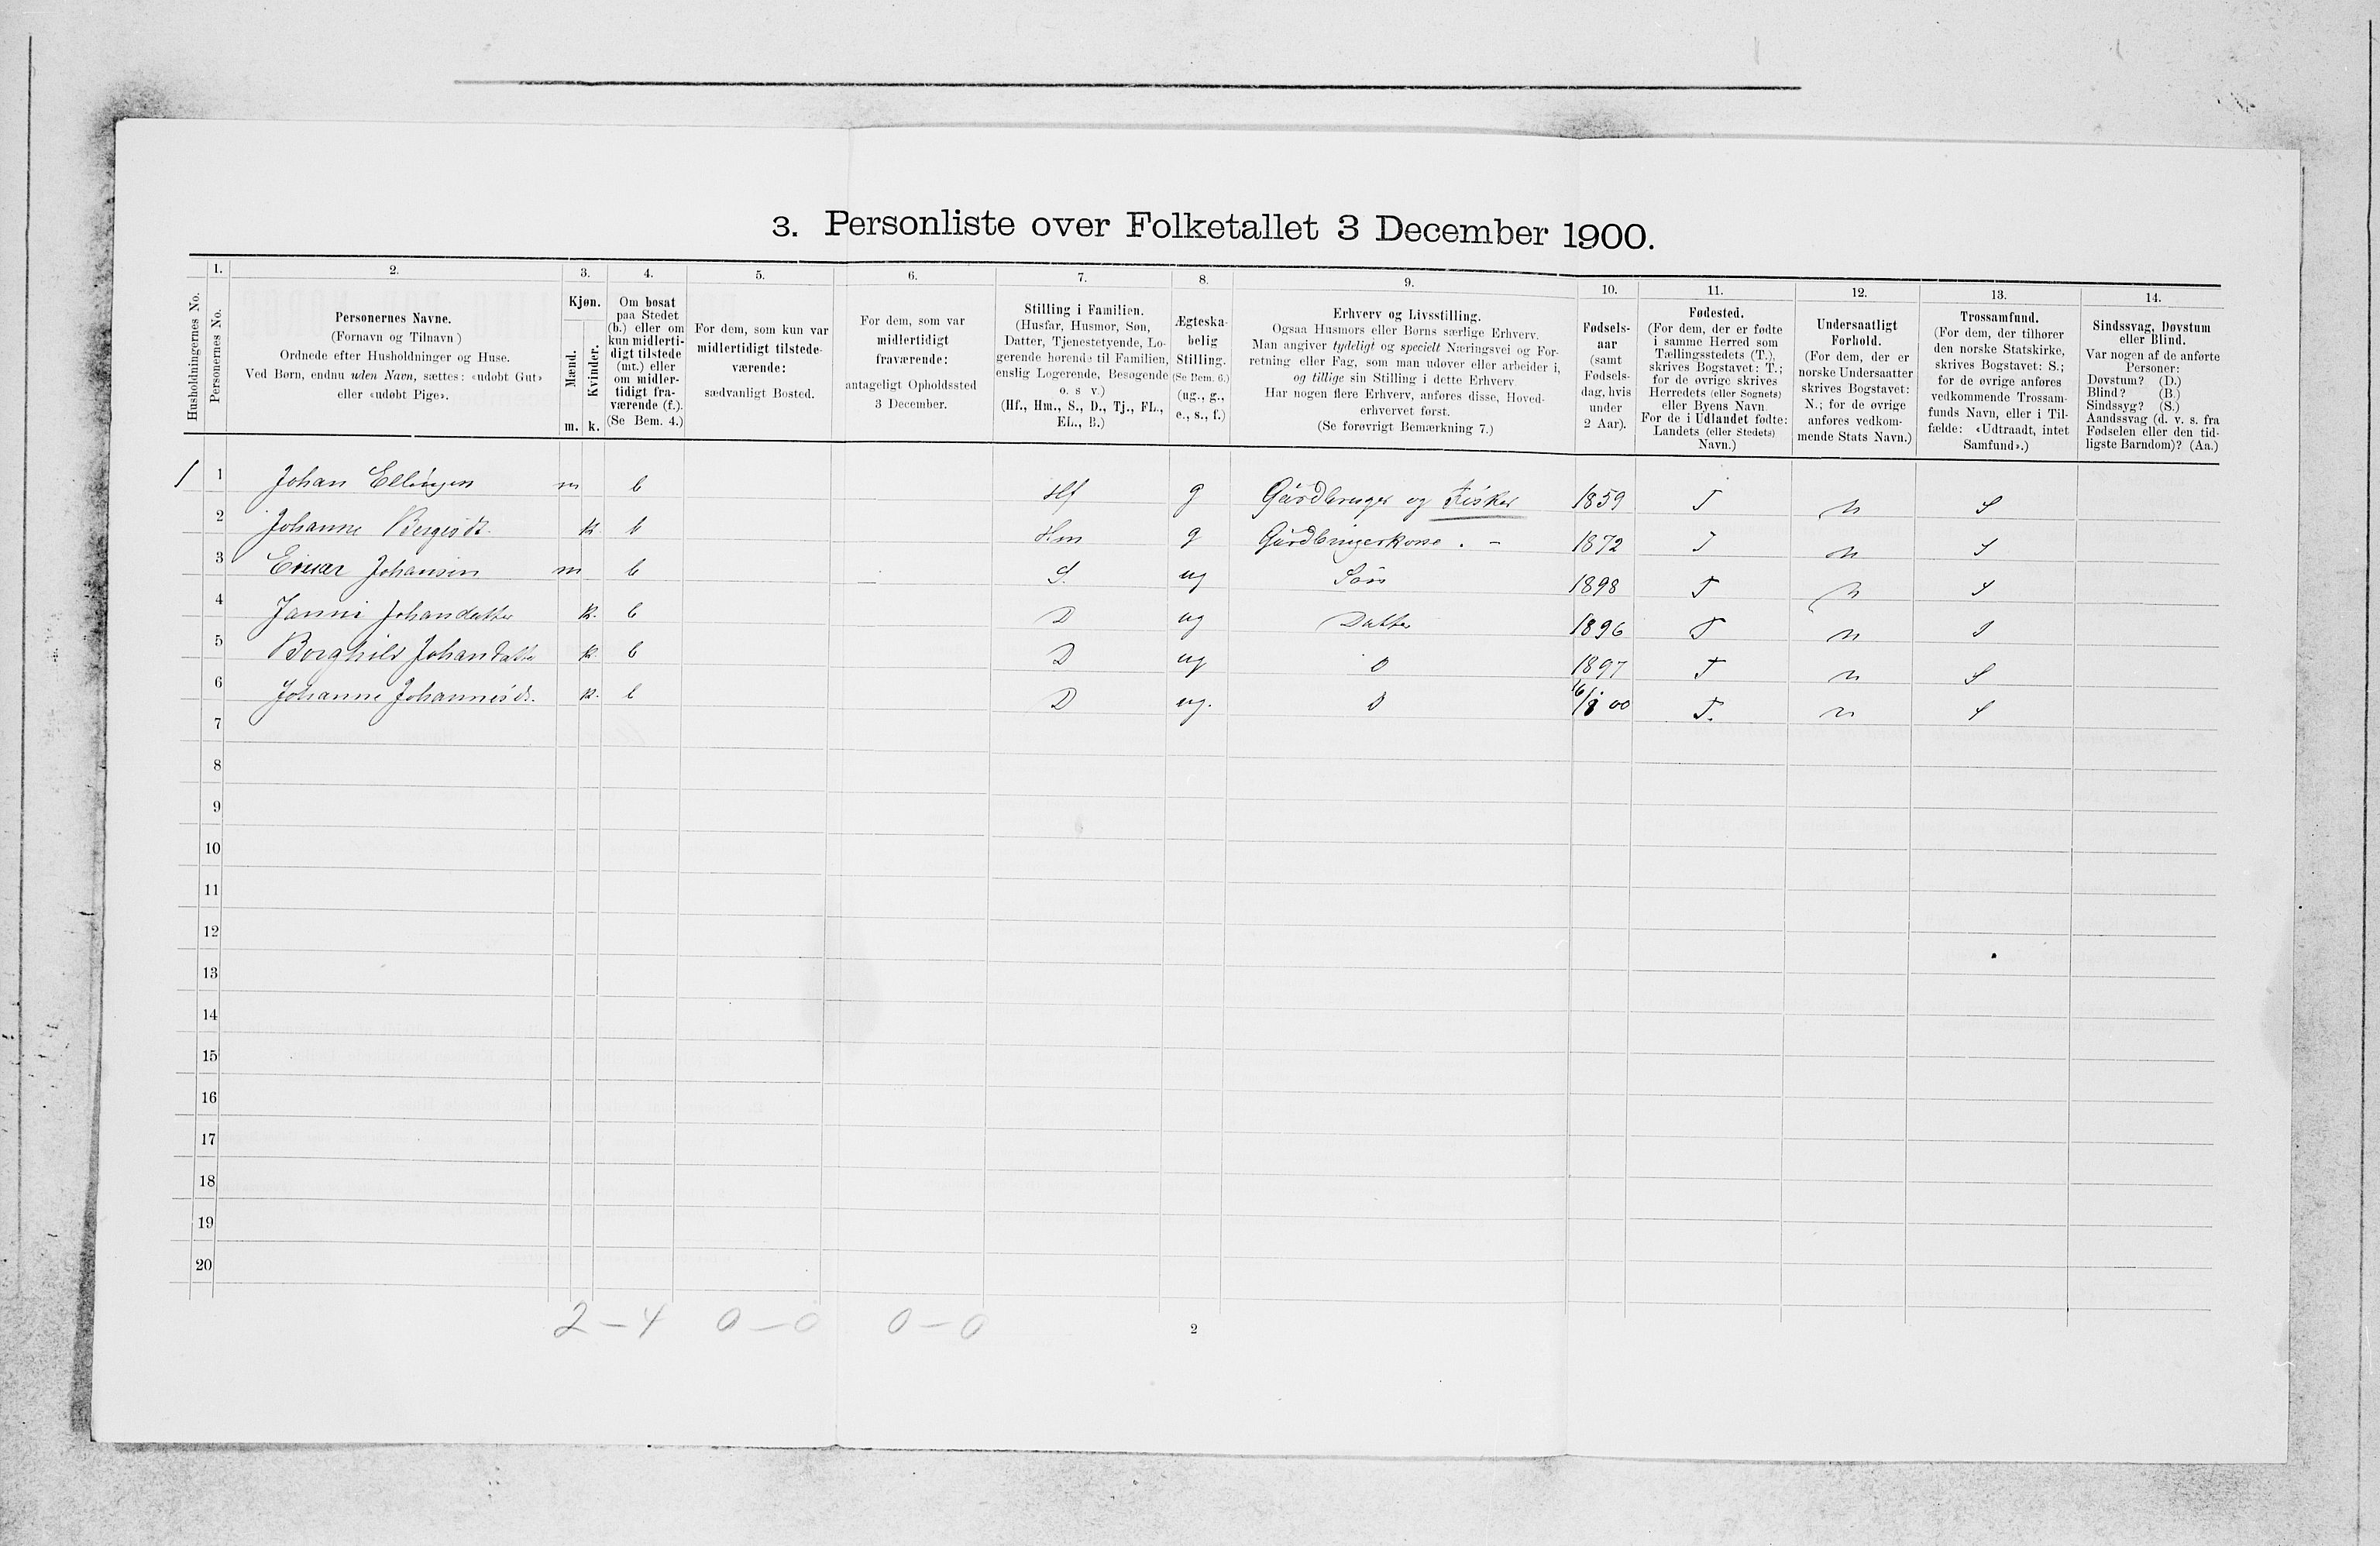 3. Personliste over Folketallet 3 December 1900.
Husholdningernes No.
1.
Personernes No.
2.
Personernes Navne.
(Fornavn og Tilnavn)
Ordnede efter Husholdninger og Huse.
Ved Børn, endnu uden Navn, sættes: «udøbt Gut»
eller «udøbt Pige».
3.
Kjøn.
Mænd.
Kvinder.
m. k.
4.
Om bosat
paa Stedet
(b.) eller om
kun midlerti-
digt tilstede
(mt.) eller
om midler-
tidigt fra-
værende (f.).
(Se Bem. 4.)
5.
For dem, som kun var
midlertidigt tilstede-
værende:
sædvanligt Bosted.
6.
For dem, som var
midlertidigt
fraværende:
antageligt Opholdssted
3 December.
7.
Stilling i Familien.
(Husfar, Husmor, Søn,
Datter, Tjenestetyende, Lo-
gerende hørende til Familien,
enslig Logerende, Besøgende
o. s v.)
(Hf., Hm., S., D., Tj., FL.,
EL., B.)
8.
Ægteska-
belig
Stilling.
(Se Bem. 6.)
(ug., g.,
e., s., f.)
9.
Erhverv og Livsstilling.
Ogsaa Husmors eller Børns særlige Erhverv.
Man angiver tydeligt og specielt Næringsvei og For-
retning eller Fag, som man udøver eller arbeider i,
og tillige sin Stilling i dette Erhverv
Har nogen flere Erhverv, anføres disse, Hoved-
erhvervet først.
(Se forøvrigt Bemærkning 7.)
10.
Fødsels-
aar
(samt
Fødsels-
dag, hvis
under
2 Aar).
11.
Fødested.
(For dem, der er fødte
i samme Herred som
Tællingsstedets (T.),
skrives Bogstavet: T.;
for de øvrige skrives
Herredets (eller Sognets)
eller Byens Navn
For de i Udlandet fødte:
Landets (eller Stedets)
Navn.)
12.
Undersaatligt
Forhold.
(For dem, der er
norske Undersaatter
skrives Bogstavet:
N.; for de øvrige
anføres vedkom-
mende Stats Navn.)
13.
Trossamfund.
(For dem, der tilhører
den norske Statskirke,
skrives Bogstavet: S.;
for de øvrige anføres
vedkommende Trossam-
funds Navn, eller i Til-
fælde: «Udtraadt, intet
Samfund».)
14.
Sindssvag, Døvstum
eller Blind.
Var nogen af de anførte
Personer:
Døvstum? (D.)
Blind? (B.)
Sindssyg? (S.)
Aandssvag (d. v. s. fra
Fødselen eller den tid-
ligste Barndom)? (Aa.)
1 1 Johan Ellingsen m b Hf g Gårdbruger og Fisker 1859 T n S
2 Johanne Bergesdt. k b Hm g Gårdbrugerkone . - 1872 T n S
3 Einar Johansen m b S. ug Søn 1898 T n S
4 Janni Johandatter k. b D ug Datter 1896 T n S
5 Borghild Johandatter k. b D ug D 1897 T n S
6 Johanne Johannesdt. k. b D ug. D 16/8 00 T. n S
7
8
9
10
11
12
13
14
15
16
17
18
19
20
2 – 4 0 – 0 0 – 0
2